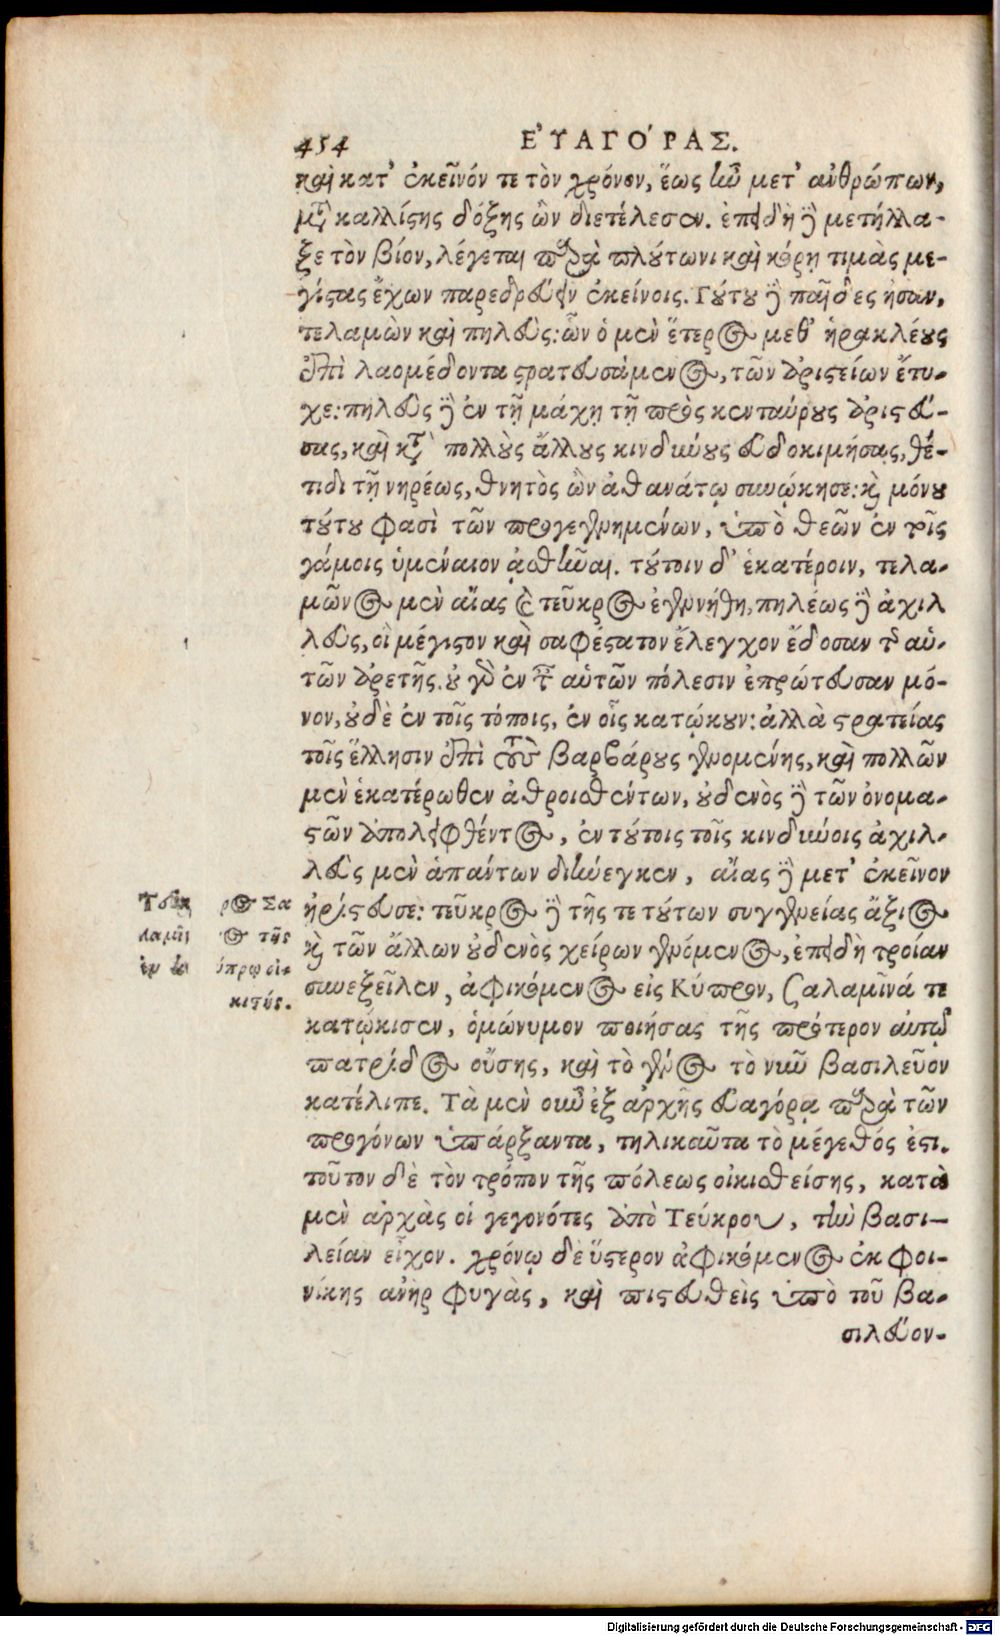 454 ΕὙΑΓΌΡΑΣ.
καὶ κατ' ἐκεῖνόν τε τὸν χρόνον, ἕως ἦν μετ' ἀνθρώπων,
μετὰ καλλίστης δόξης ὢν διετέλεσεν. ἐπειδὴ δὲ μετήλλα-
ξε τὸν βίον, λέγεται παρὰ πλούτωνι καὶ κόρῃ τιμὰς με-
γίστας ἔχων παρεδρεύειν ἐκείνοις. Τούτου δὲ παῖδες ἦσαν,
τελαμὼν καὶ πηλεύς: ὧν ὁ μὲν ἕτερος μεθ' ἡρακλέους
ἐπὶ λαομέδοντα στρατευσάμενος, τῶν ἀριστείων ἔτυ-
χε: πηλεὺς δὲ ἐν τῇ μάχῃ τῇ πρὸς κενταύρους ἀριστεύ-
σας, καὶ κατὰ πολλοὺς ἄλλους κινδύνους εὐδοκιμήσας, θέ-
τιδι τῇ νηρέως, θνητὸς ὢν ἀθανάτῳ συνῴκησε: καὶ μόνου
τούτου φασὶ τῶν προγεγενημένων, ὑπὸ θεῶν ἐν τοῖς
γάμοις ὑμέναιον ᾀσθῆναι. τούτοιν δ' ἑκατέροιν, τελα-
μῶνος μὲν αἴας καὶ τεῦκρος ἐγενήθη, πηλέως δὲ ἀχιλ
λεὺς, οἳ μέγιστον καὶ σαφέστατον ἔλεγχον ἔδοσαν τῆς αὑ-
τῶν ἀρετῆς. οὐ γὰρ ἐν ταῖς αὑτῶν πόλεσιν ἐπρώτευσαν μό-
νον, οὐδὲ ἐν τοῖς τόποις, ἐν οἷς κατῴκουν: ἀλλὰ στρατείας
τοῖς ἕλλησιν ἐπὶ τοὺς βαρβάρους γενομένης, καὶ πολλῶν
μὲν ἑκατέρωθεν ἀθροισθέντων, οὐδενὸς δὲ τῶν ὀνομα-
στῶν ἀπολειφθέντος, ἐν τούτοις τοῖς κινδύνοις ἀχιλ-
λεὺς μὲν ἁπάντων διήνεγκεν, αἴας δὲ μετ' ἐκεῖνον
ἠρίστευσε: τεῦκρος δὲ τῆς τε τούτων συγγενείας ἄξιος
καὶ τῶν ἄλλων οὐδενὸς χείρων γενόμενος, ἐπειδὴ τροίαν
συνεξεῖλεν, ἀφικόμενος εἰς Κύπρον, Σαλαμῖνά τε
κατῴκισεν, ὁμώνυμον ποιήσας τῆς πρότερον αὐτῷ
πατρίδος οὔσης, καὶ τὸ γένος τὸ νῦν βασιλεῦον
κατέλιπε. Τὰ μὲν οὖν ἐξ ἀρχῆς εὐαγόρᾳ παρὰ τῶν
προγόνων ὑπάρξαντα, τηλικαῦτα τὸ μέγεθός ἐστι.
τοῦτον δὲ τὸν τρόπον τῆς πόλεως οἰκισθείσης, κατὰ
μὲν ἀρχὰς οἱ γεγονότες ἀπὸ Τεύκρου, τὴν βασι-
λείαν εἶχον. χρόνῳ δὲ ὕστερον ἀφικόμενος ἐκ φοι-
νίκης ἀνὴρ φυγὰς, καὶ πιστευθεὶς ὑπὸ τοῦ βα-
σιλεύον-
ρος Σα
λαμῖ ος τῆς
ἐν ύπρῳ οἰ-
κιστής.
Digitalisierung gefördert durch die Deutsche Forschungsgemeinschaft - DFG